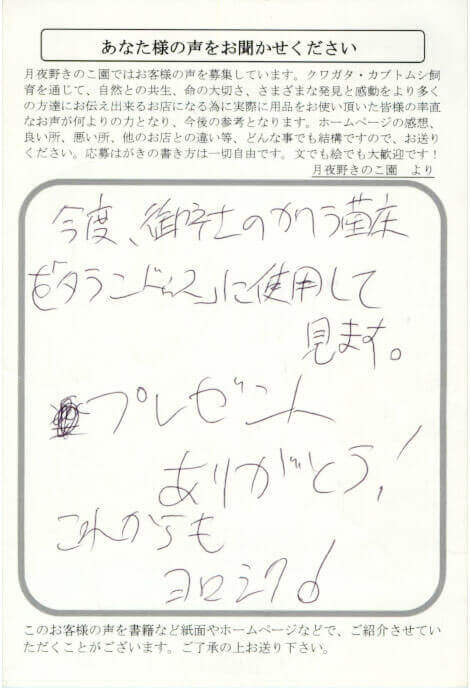 あなた様の声をお聞かせください
月夜野きのこ園ではお客様の声を募集しています。クワガタ・カブトムシ飼
育を通じて、自然との共生、命の大切さ、さまざまな発見と感動をより多く
の方達にお伝え出来るお店になる為に実際に用品をお使い頂いた皆様の率直
なお声が何よりの力となり、今後の参考となります。ホームページの感想、
良い所、悪い所、他のお店との違い等、どんな事でも結構ですので、お送り
ください。応募はがきの書き方は一切自由です。文でも絵でも大歓迎です！
月夜野きのこ園　より
今度、御宅士のカワラ菌床
を「タランドゥス」に使用して
見ます。
プレゼント
ありがとう！
これからも
ヨロシク！
このお客様の声を書籍など紙面やホームページなどで、ご紹介させてい
ただくことがございます。ご了承の上お送り下さい。